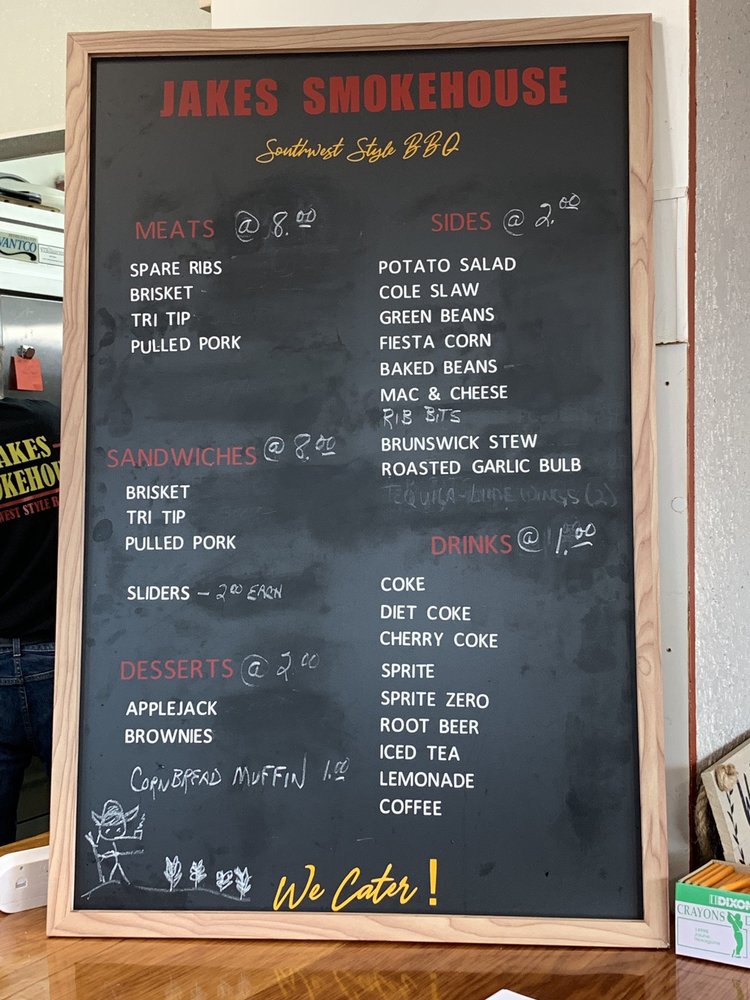 JAKES SMOKEHOUSE
Southwest Style BBQ
MEATS @ 8.00
SPARE RIBS
BRISKET
TRI TIP
PULLED PORK
SANDWICHES @ 8.00
BRISKET
TRI TIP
PULLED PORK
SLIDERS – 2.00 EACH
DESSERTS @ 2.00
APPLEJACK
BROWNIES
CORNBREAD MUFFIN 1.00
SIDES @ 2.00
POTATO SALAD
COLE SLAW
GREEN BEANS
FIESTA CORN
BAKED BEANS
MAC & CHEESE
RIB BITS
BRUNSWICK STEW
ROASTED GARLIC BULB
TEQUILA-LIME WINGS (2)
DRINKS @ 1.00
COKE
DIET COKE
CHERRY COKE
SPRITE
SPRITE ZERO
ROOT BEER
ICED TEA
LEMONADE
COFFEE
We Cater!
VANTCO
AKES
OKEHOU
WEST STYLE B
DIXON
CRAYONS